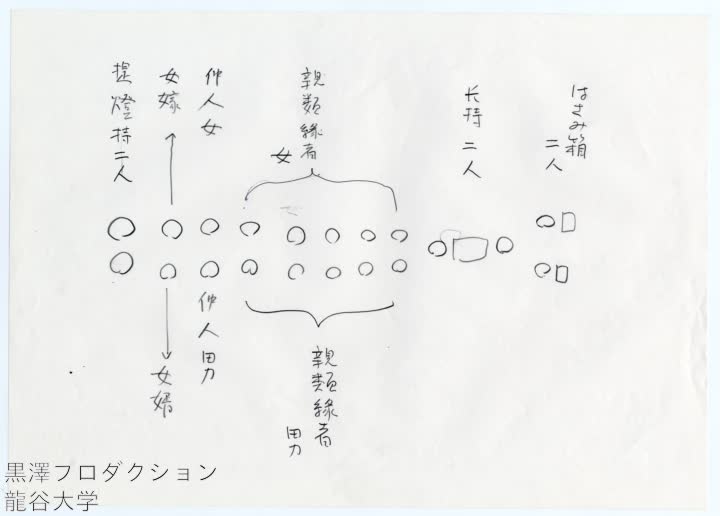 はさみ箱
二人
长持二人
親類縁者
女
仲人女
女嫁
提燈持二人
親類縁者
男
仲人男
女婿
黒澤プロダクション
龍谷大学